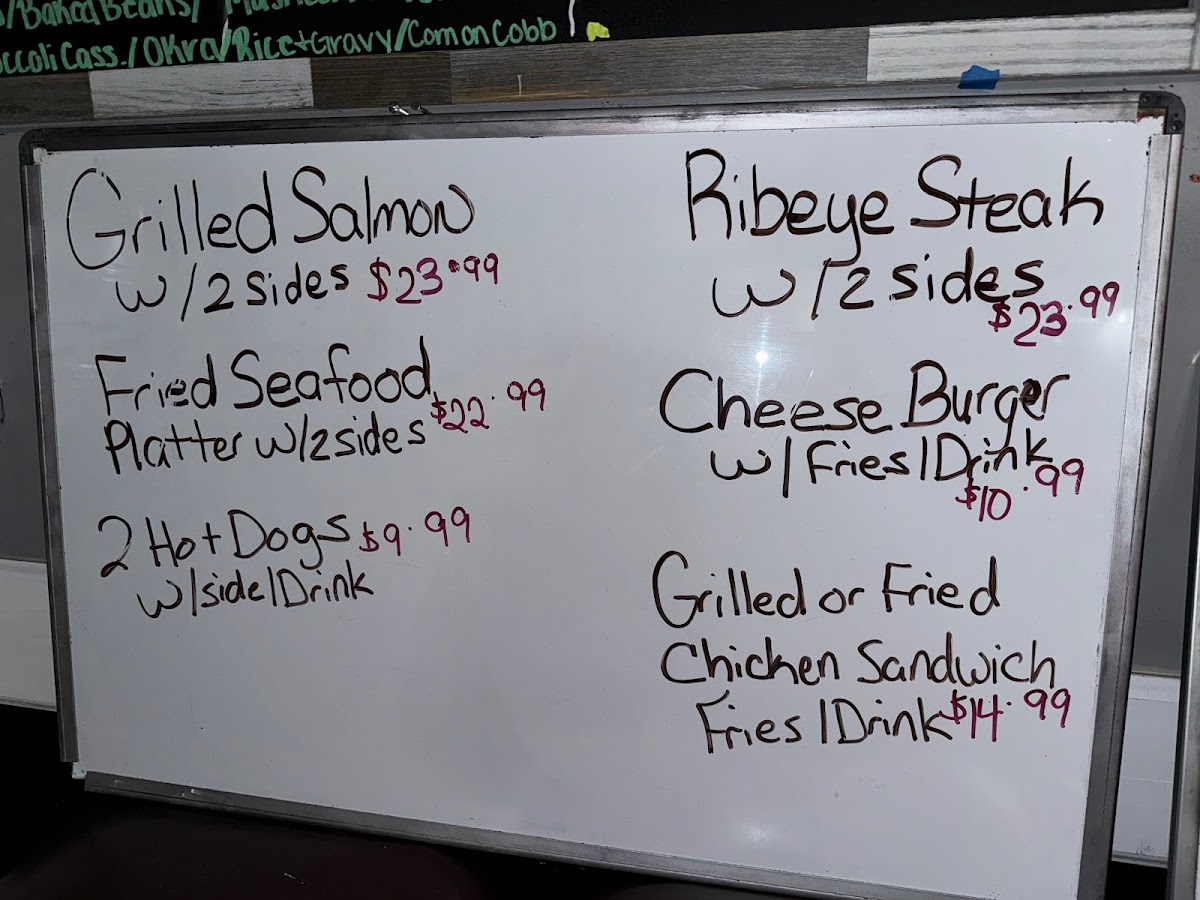 Baked Beans/
Cass./Okra/Rice+Gravy/Corn on Cobb
Grilled Salmon
w/2 sides $23.99
Fried Seafood
Platter w/2sides $22.99
2 Hot Dogs $9.99
w/side/Drink
Ribeye Steak
w/2 sides
$23.99
Cheese Burger
w/Fries/Drink
$10.99
Grilled or Fried
Chicken Sandwich
Fries/Drink $14.99